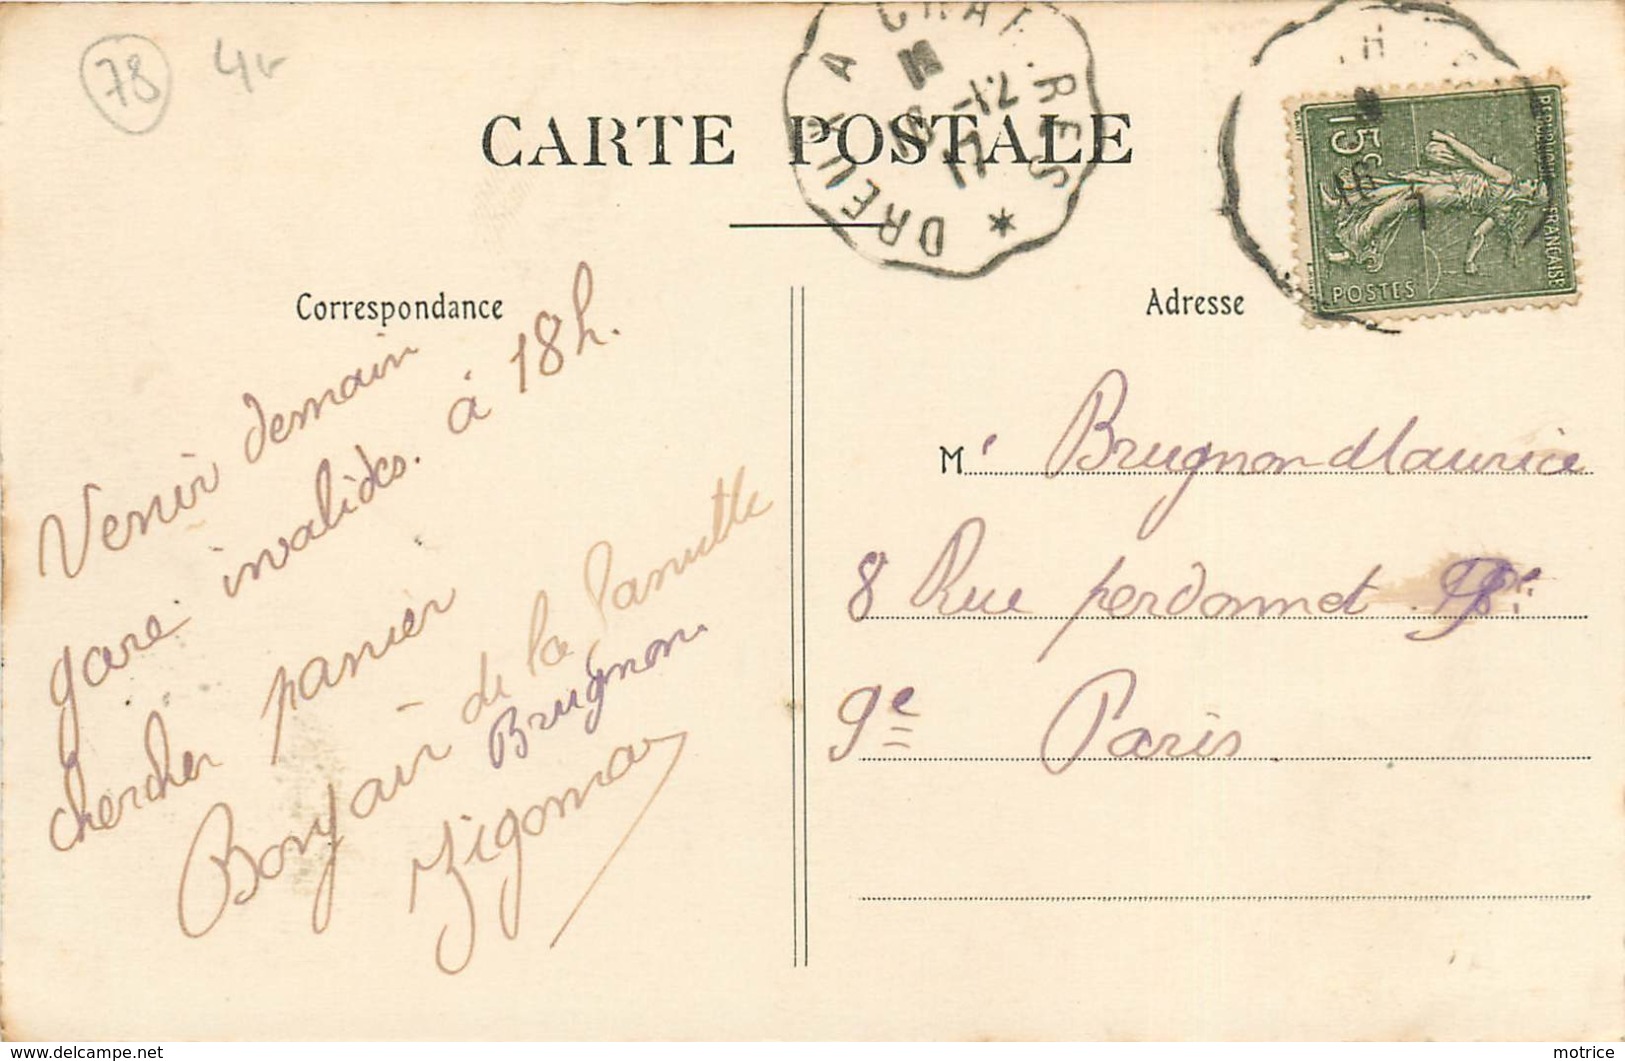 78 4
CARTE POSTALE
DREUX A CHARTRES
Correspondance
Adresse
Venir demain
gare invalides. à 18h.
chercher panier
Bonjour de la famille
Brugnon.
Zigomar
Mr Brugnon Maurice
8 Rue perdonnet
9e Paris
15c
POSTES
REPUBLIQUE FRANÇAISE
www.delcampe.net
motrice